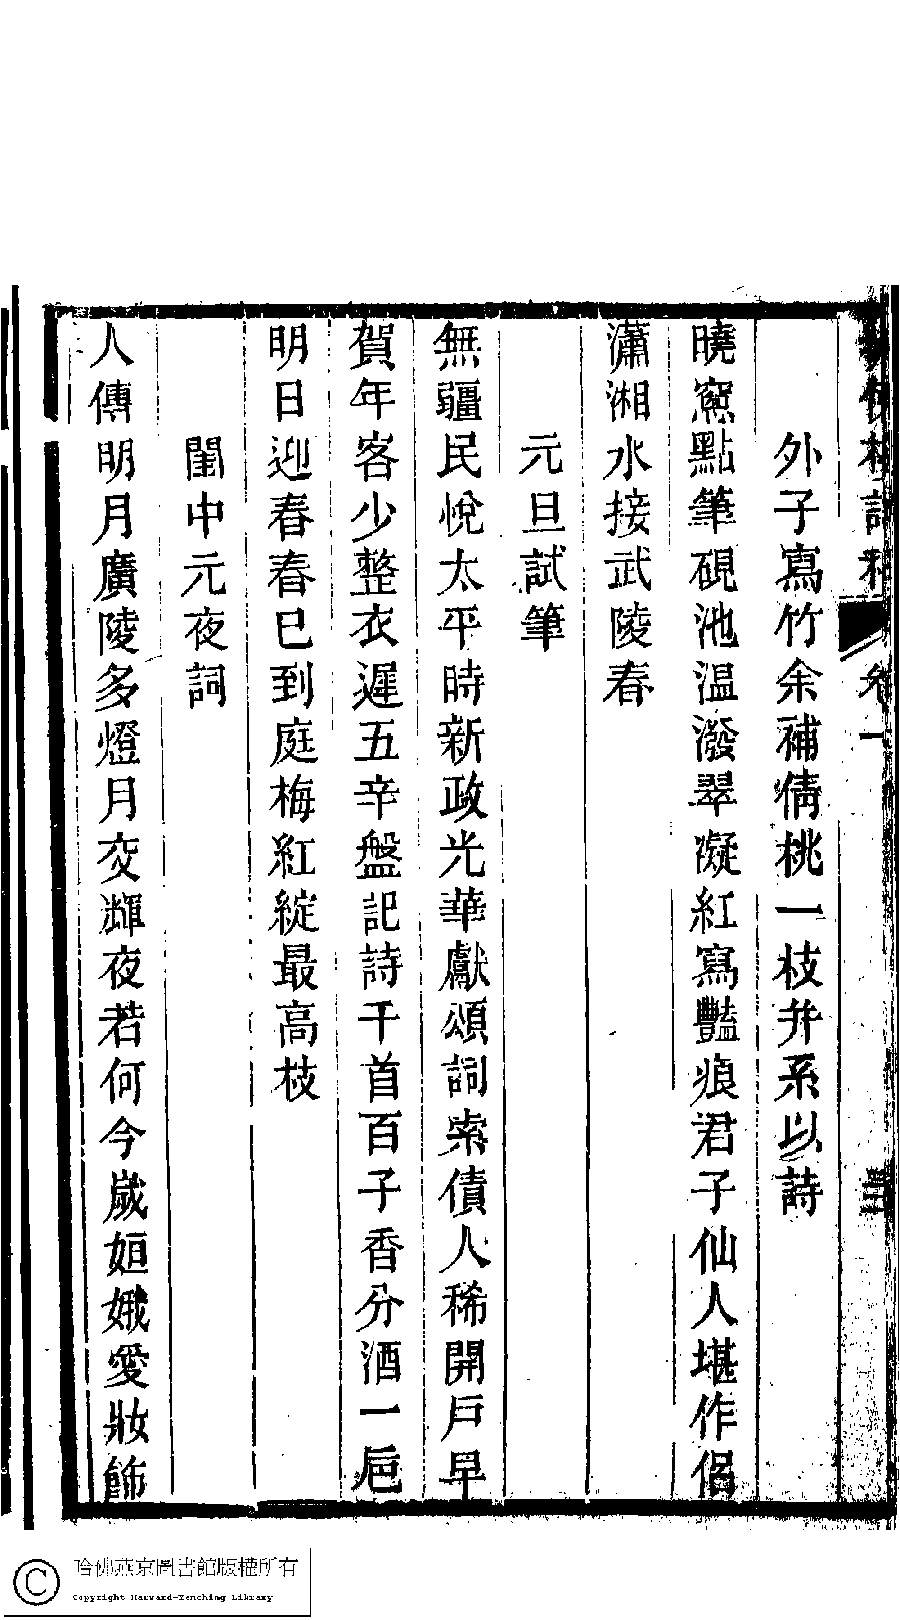 卷一
外子寫竹余補倩桃一枝并系以詩
曉窻點筆硯池温潑翠凝紅寫豔痕君子仙人堪作侶
瀟湘水接武陵春
元旦試筆
無疆民悅太平時新政光華獻頌詞索債人稀開戶早
賀年客少整衣遲五辛盤記詩千首百子香分酒一卮
明日迎春春已到庭梅紅綻最高枝
閨中元夜詞
人傳明月廣陵多燈月交輝夜若何今歲姮娥愛妝飾
哈佛燕京圖書館版權所有
Copyright Harvard-Yenching Library